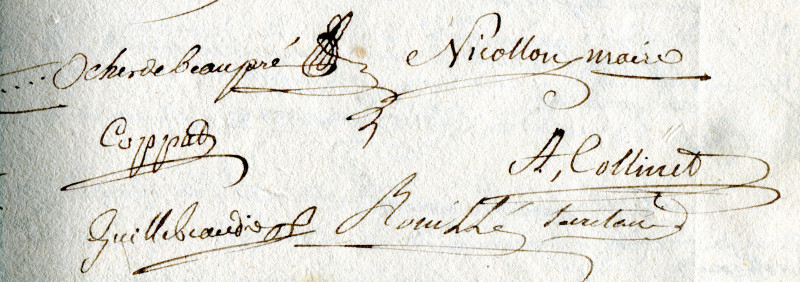 Ocherdebeaupré Nicollon maire
Coppat A, Collinet
Guillebeaudie Rouillé